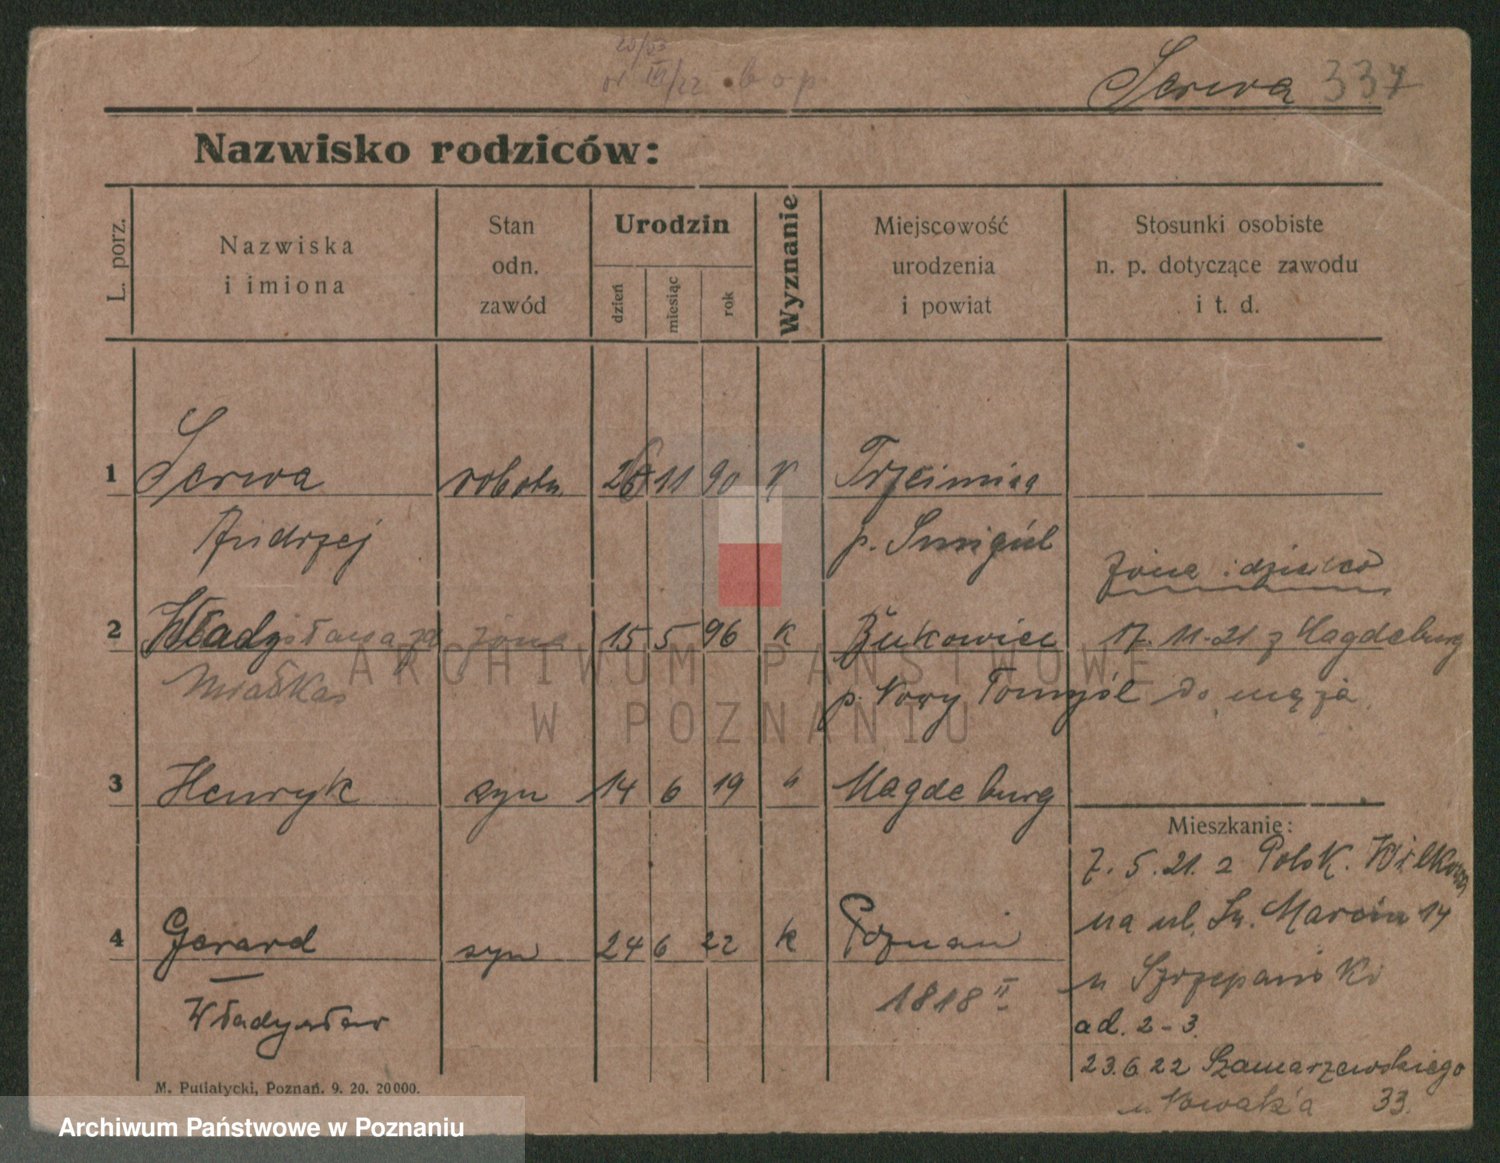 20/53
III/22 b o p
Serwa 337
Nazwisko rodziców:
L. porz.
Nazwiska
i imiona
Stan
odn.
zawód
Urodzin
dzień
miesiąc
rok
Wyznanie
Miejscowość
urodzenia
i powiat
Stosunki osobiste
n. p. dotyczące zawodu
i t. d.
1 Serwa robotn. 26 11 90 K
Andrzej p. Śmigiel
żona i dziecko
2 Władysława żona 15 5 96 K Bukowiec 17.11.21 z Magdeburg
p. Nowy Tomyśl do męża
3 Henryk syn 14 6 19 " Magdeburg
Mieszkanie:
7.5.21. z Polsk.
na ul. Św. Marcin 14
4 Gerard syn 24 6 22 K Poznań
u Szczepański
Władysław 1818 II
ad. 2-3.
23.6.22 Szamarzewskiego
u Nowak'a 33.
M. Putiatycki, Poznań. 9. 20. 20000.
ARCHIWUM PAŃSTWOWE
W POZNANIU
Archiwum Państwowe w Poznaniu